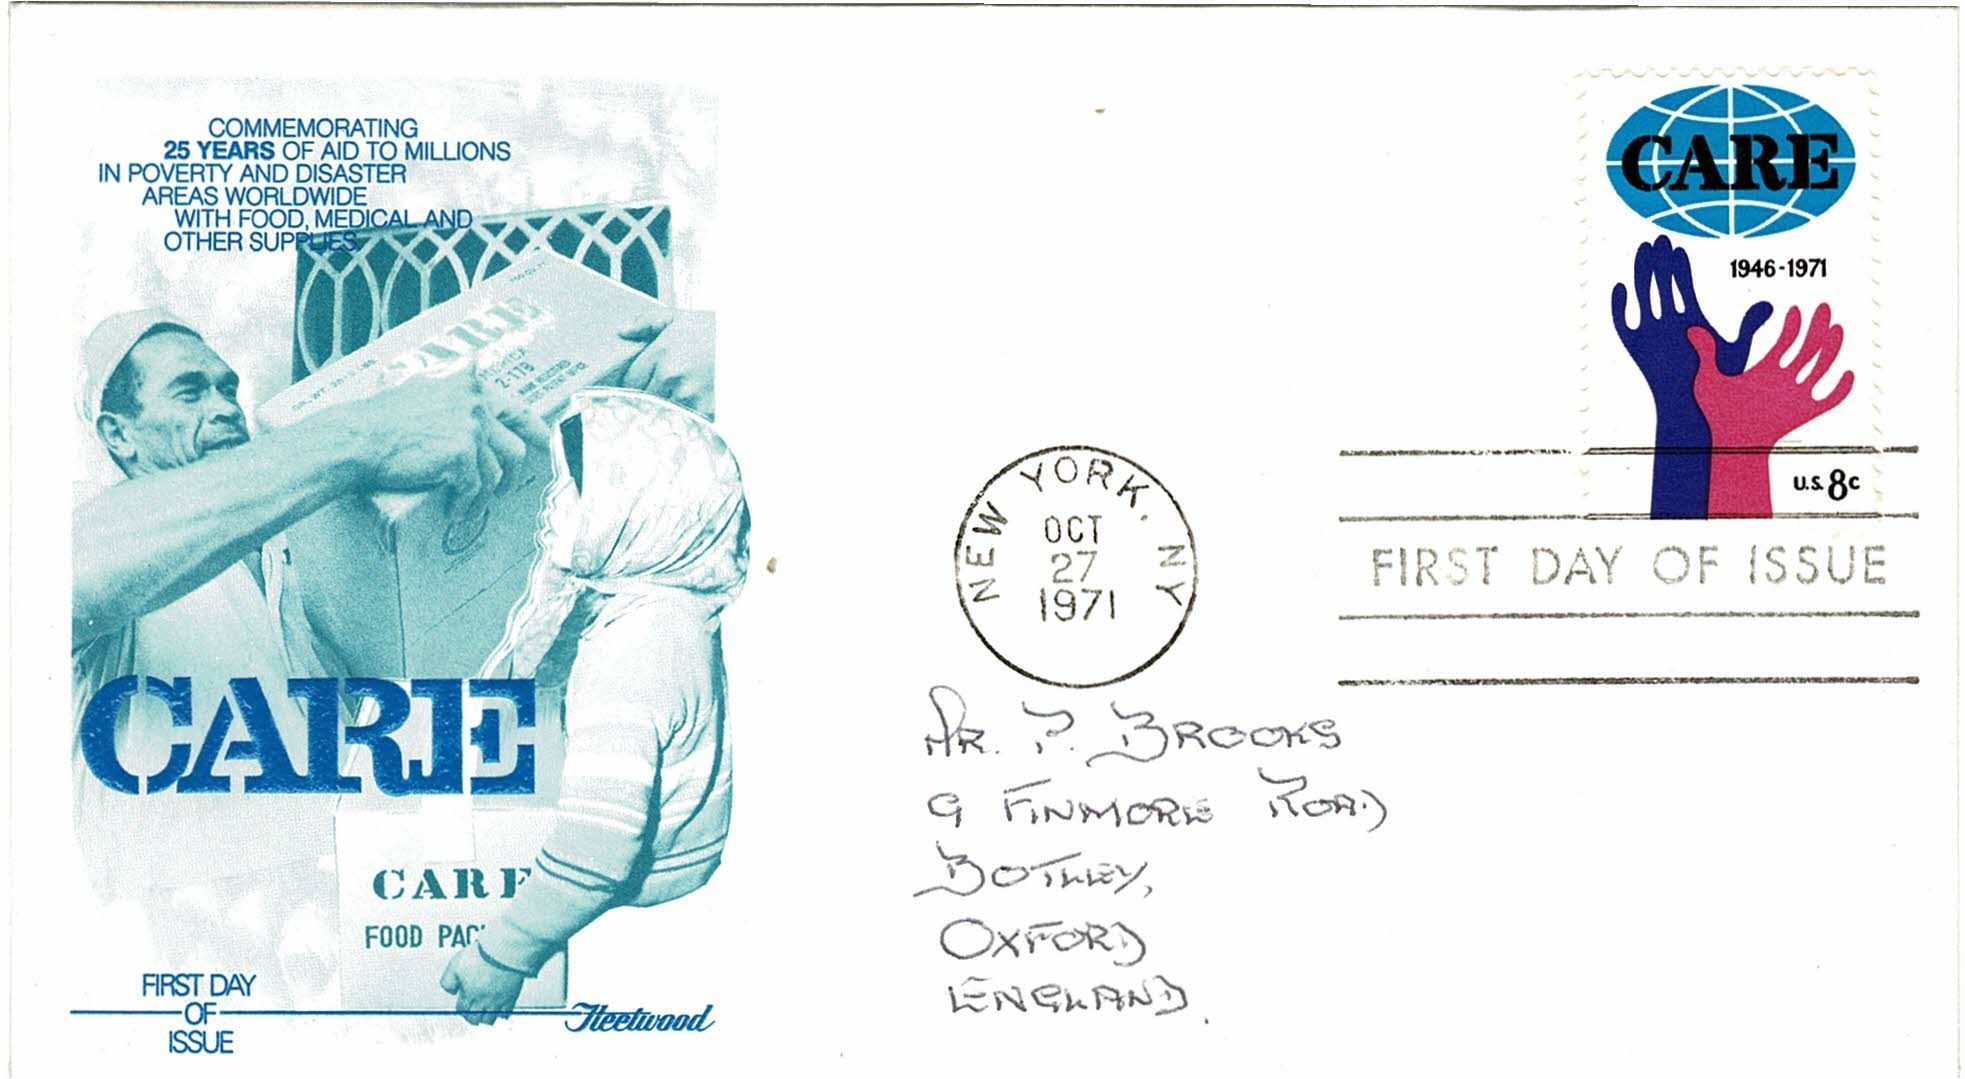 COMMEMORATING
25 YEARS OF AID TO MILLIONS
IN POVERTY AND DISASTER
AREAS WORLDWIDE
WITH FOOD, MEDICAL AND
OTHER SUPPLIES.
CARE
2-178
CARE
CARE
FOOD PAC
FIRST DAY
OF
ISSUE
Fleetwood
NEW YORK, NY
OCT
27
1971
CARE
1946-1971
U.S. 8c
FIRST DAY OF ISSUE
MR. P. BROOKS
9 FINMORE ROAD
BOTLEY,
OXFORD
ENGLAND.